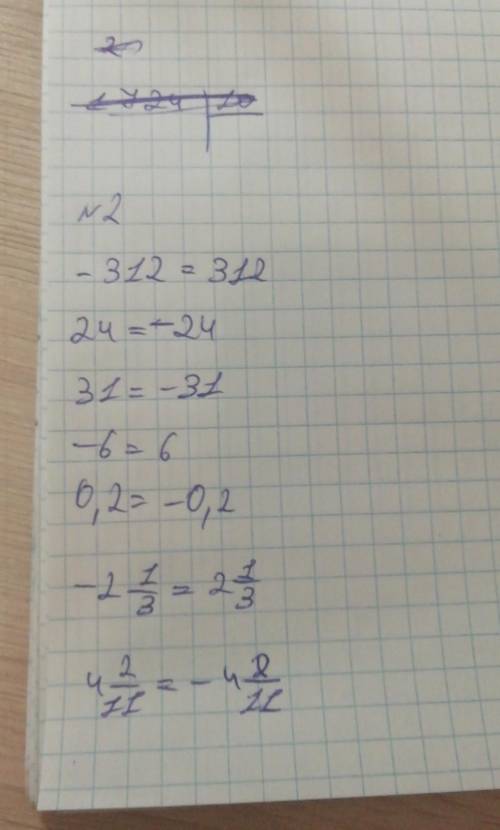 №2
-312 = 312
24 = -24
31 = -31
-6 = 6
0,2 = -0,2
-2 1/3 = 2 1/3
4 2/11 = -4 2/11